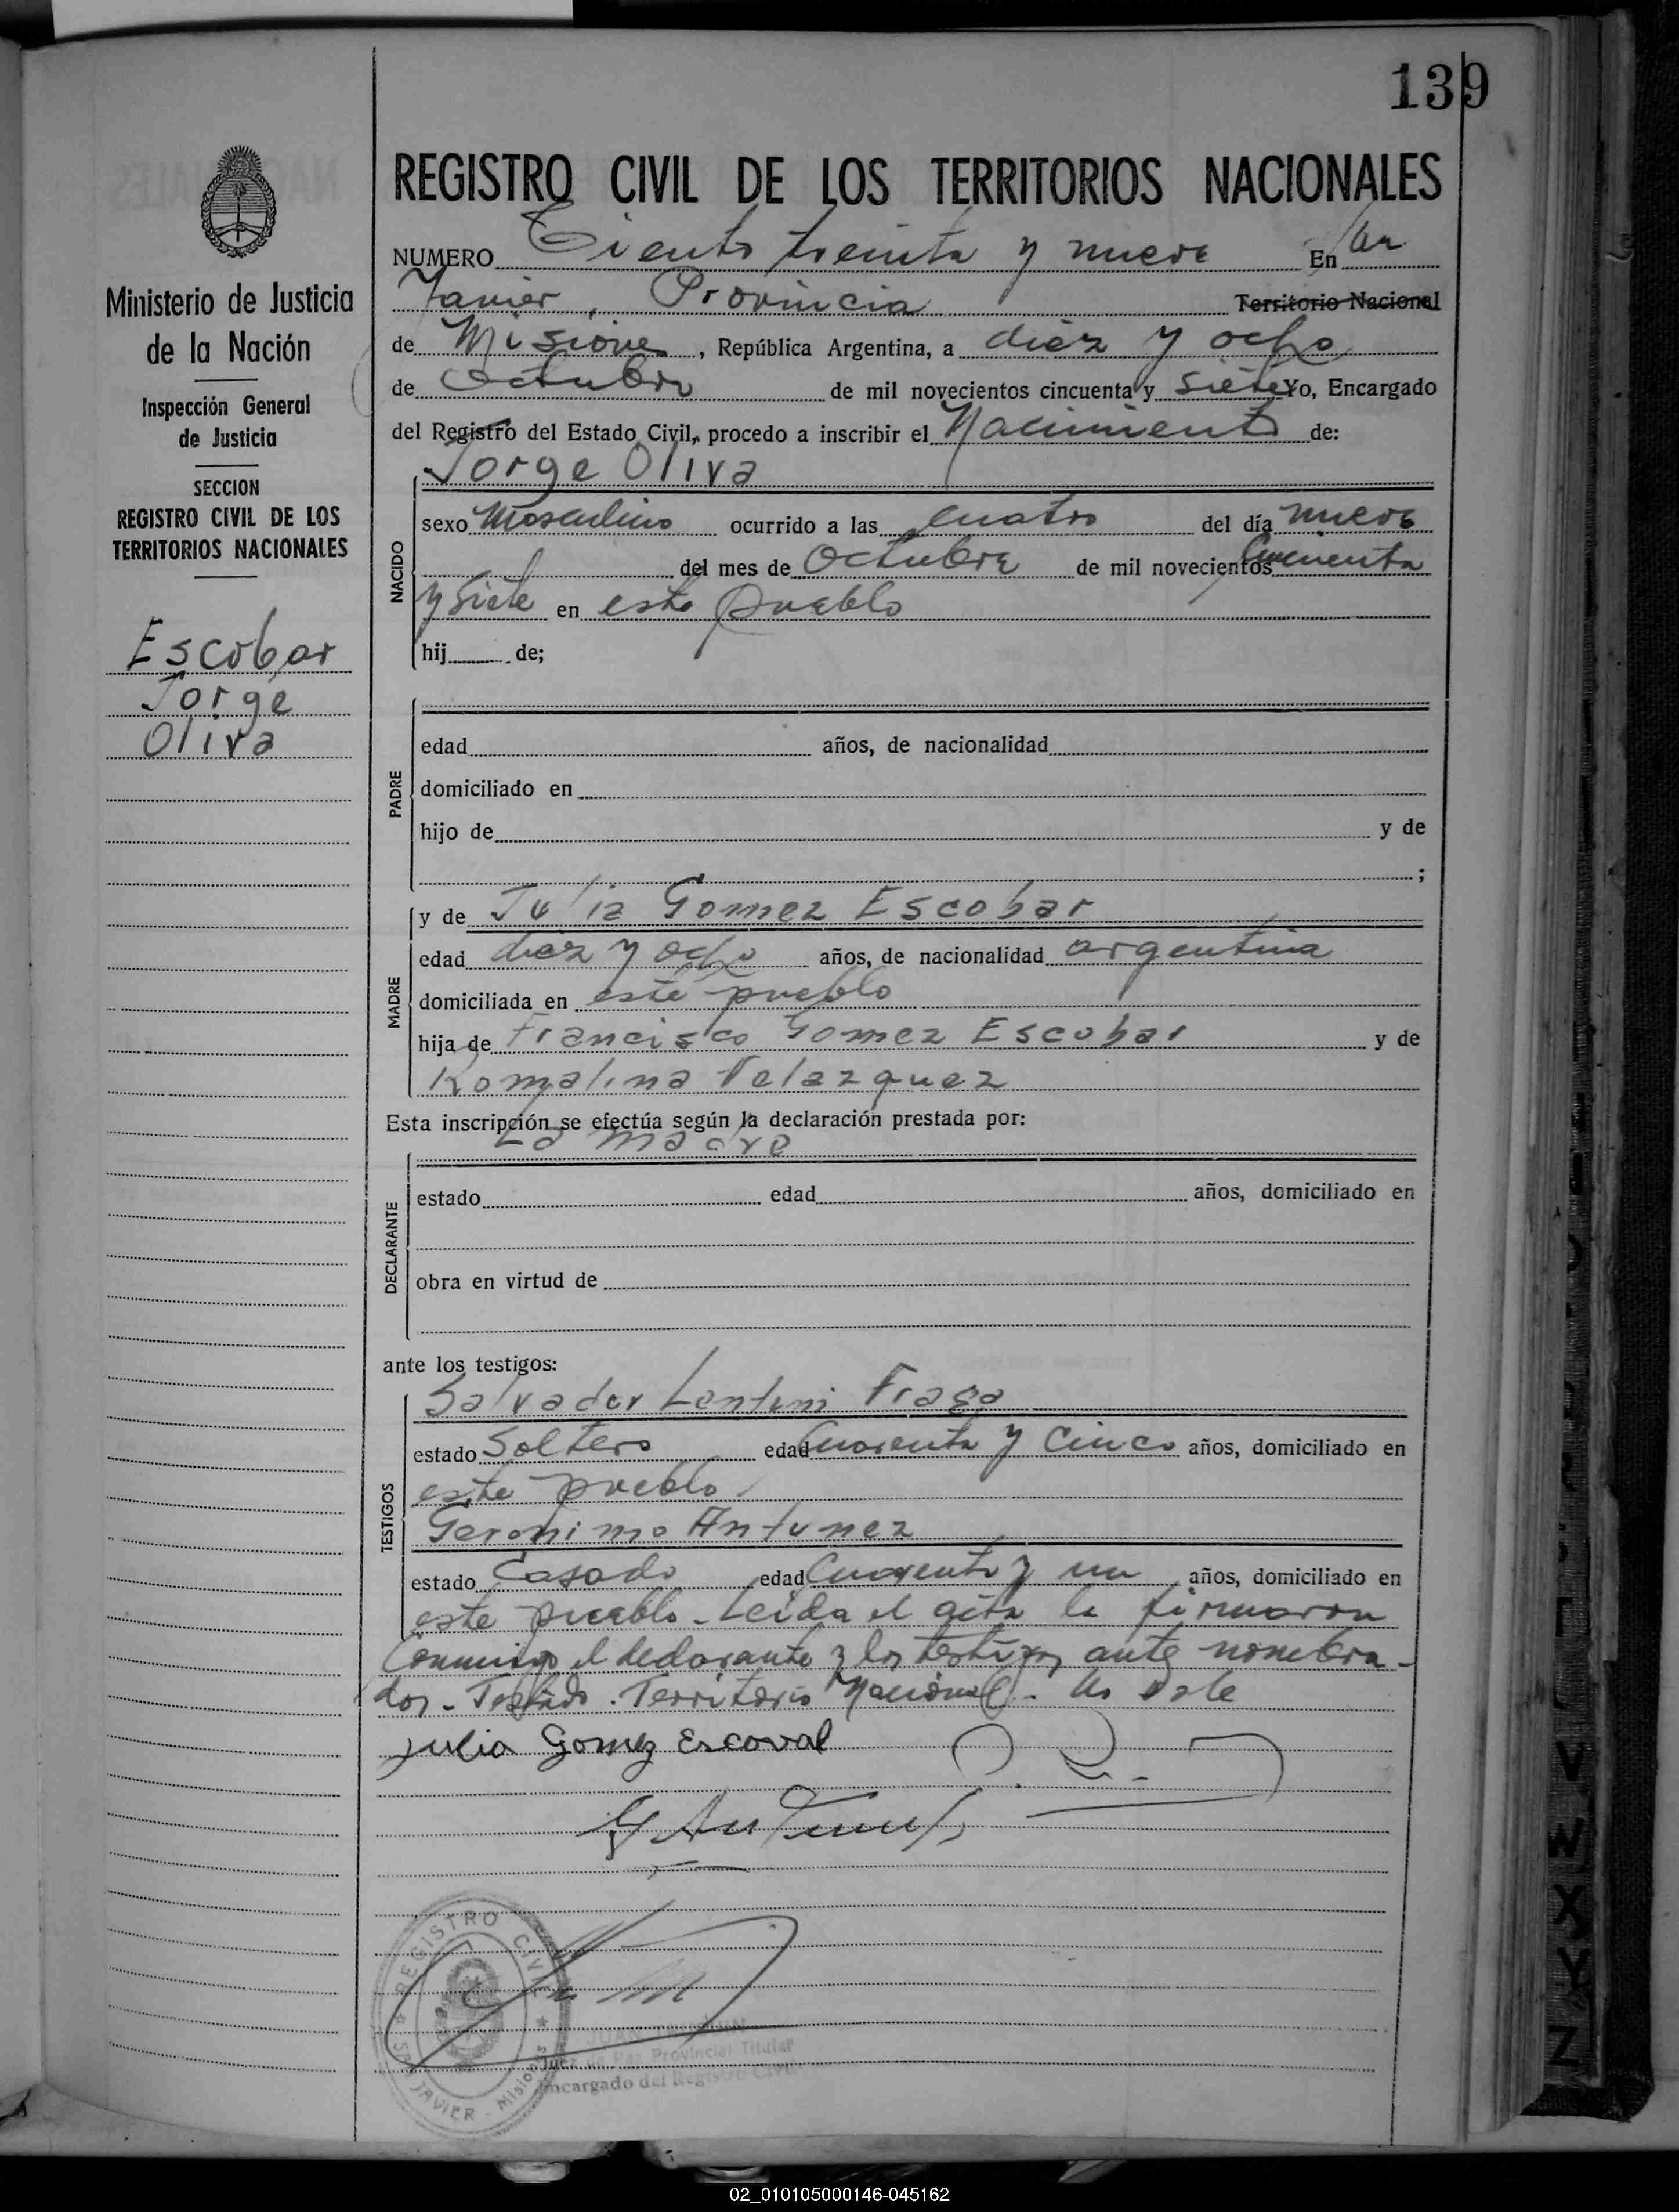 139
REGISTRO CIVIL DE LOS TERRITORIOS NACIONALES
NUMERO Ciento treinta y nueve En San
Javier, Provincia Territorio Nacional
de Misiones, República Argentina, a diez y ocho
de Octubre de mil novecientos cincuenta y siete Yo, Encargado
del Registro del Estado Civil, procedo a inscribir el Nacimiento de:
Jorge Oliva
NACIDO
sexo Masculino ocurrido a las cuatro del día nueve
del mes de Octubre de mil novecientos cincuenta
y siete en este pueblo
hij de;
PADRE
edad años, de nacionalidad
domiciliado en
hijo de y de
;
MADRE
y de Julia Gomez Escobar
edad diez y ocho años, de nacionalidad argentina
domiciliada en este pueblo
hija de Francisco Gomez Escobar y de
Romalina Velazquez
Esta inscripción se efectúa según la declaración prestada por:
La madre
DECLARANTE
estado edad años, domiciliado en
obra en virtud de
ante los testigos:
TESTIGOS
Salvador Lentini Fraga
estado Soltero edad Cuarenta y Cinco años, domiciliado en
este pueblo
Geronimo Antunez
estado Casado edad Cuarenta y un años, domiciliado en
este pueblo - Leida el acta la firmaron
conmigo el declarante y los testigos ante nombra-
dos - Testado. Territorio Nacional. No vale
Julia Gomez Escoval
Ministerio de Justicia
de la Nación
Inspección General
de Justicia
SECCION
REGISTRO CIVIL DE LOS
TERRITORIOS NACIONALES
Escobar
Jorge
Oliva
REGISTRO CIVIL
JAVIER - Misiones
JUAN
Juez de Paz Provincial Titular
Encargado del Registro Civil
V
W
X
Y
Z
02_010105000146-045162